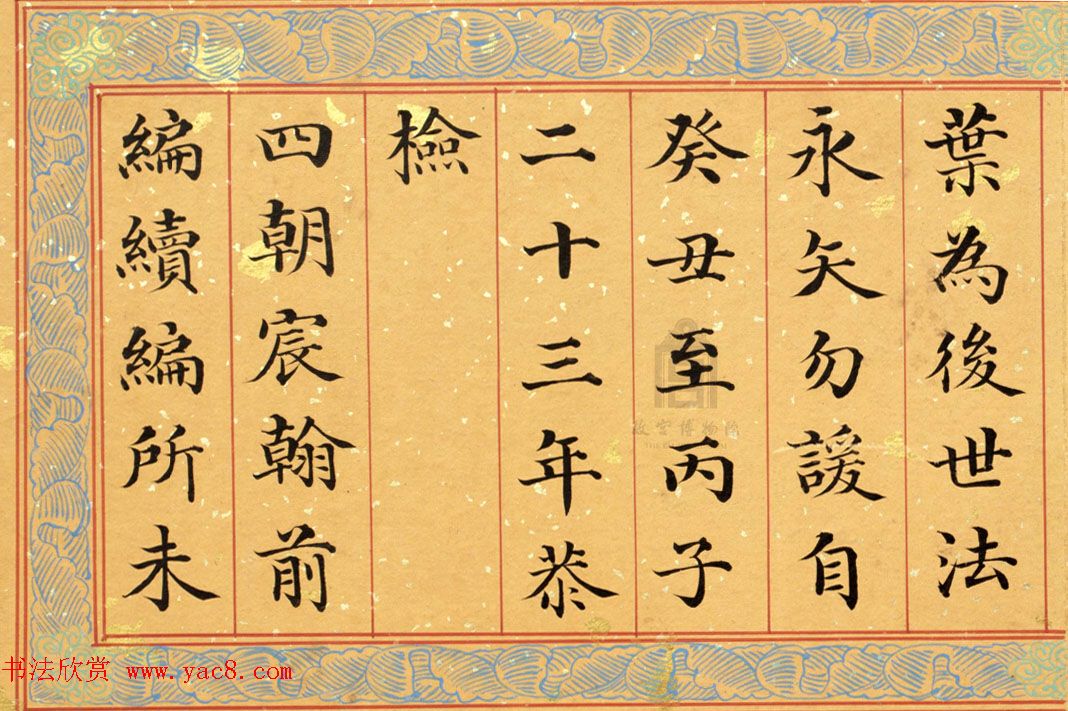 葉為後世法
永矢勿諼自
癸丑至丙子
二十三年恭
檢
四朝宸翰前
編續編所未
故宫博物院
书法欣赏 www.yac8.com